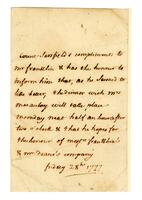 Count Sarsfield's compliments to
Mr franklin & has the honour to
inform him that, as he seemed to
like better, the dinner with Mrs
macaulay will take place
monday next half an hour after
two o'clock & that he hopes for
the honour of franklin's
& Mr deane's company
friday 28th 1777